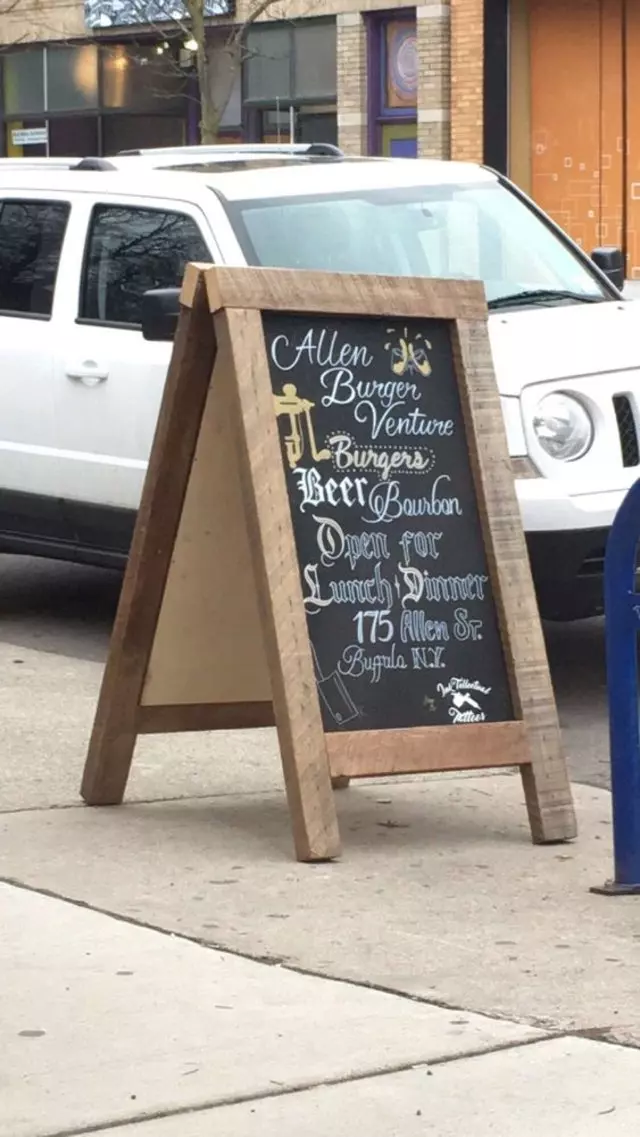 Allen
Burger
Venture
Burgers
Beer Bourbon
Open for
Lunch Dinner
175 Allen St.
Buffalo N.Y.